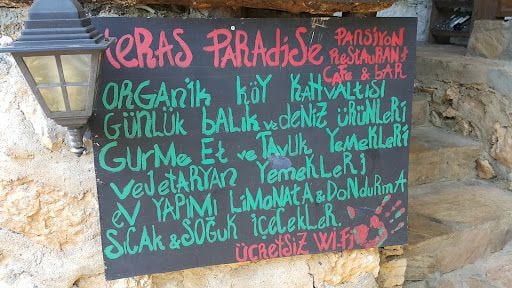 TERAS PARADiSE PANSiYON
RESTAURANT
CAFE & BAR
ORGANiK KÖY KAHVALTISI
GÜNLÜK bALIK ve DENiZ ÜRÜNLERi
GURME ET ve TAVUK YEMEKLERi
VeJETARYAN YEMEKLERi
EV YAPIMI LiMONATA & DONDURMA
SICAK & SOĞUK iÇECEKLER.
ÜCRETSiZ Wi-Fi